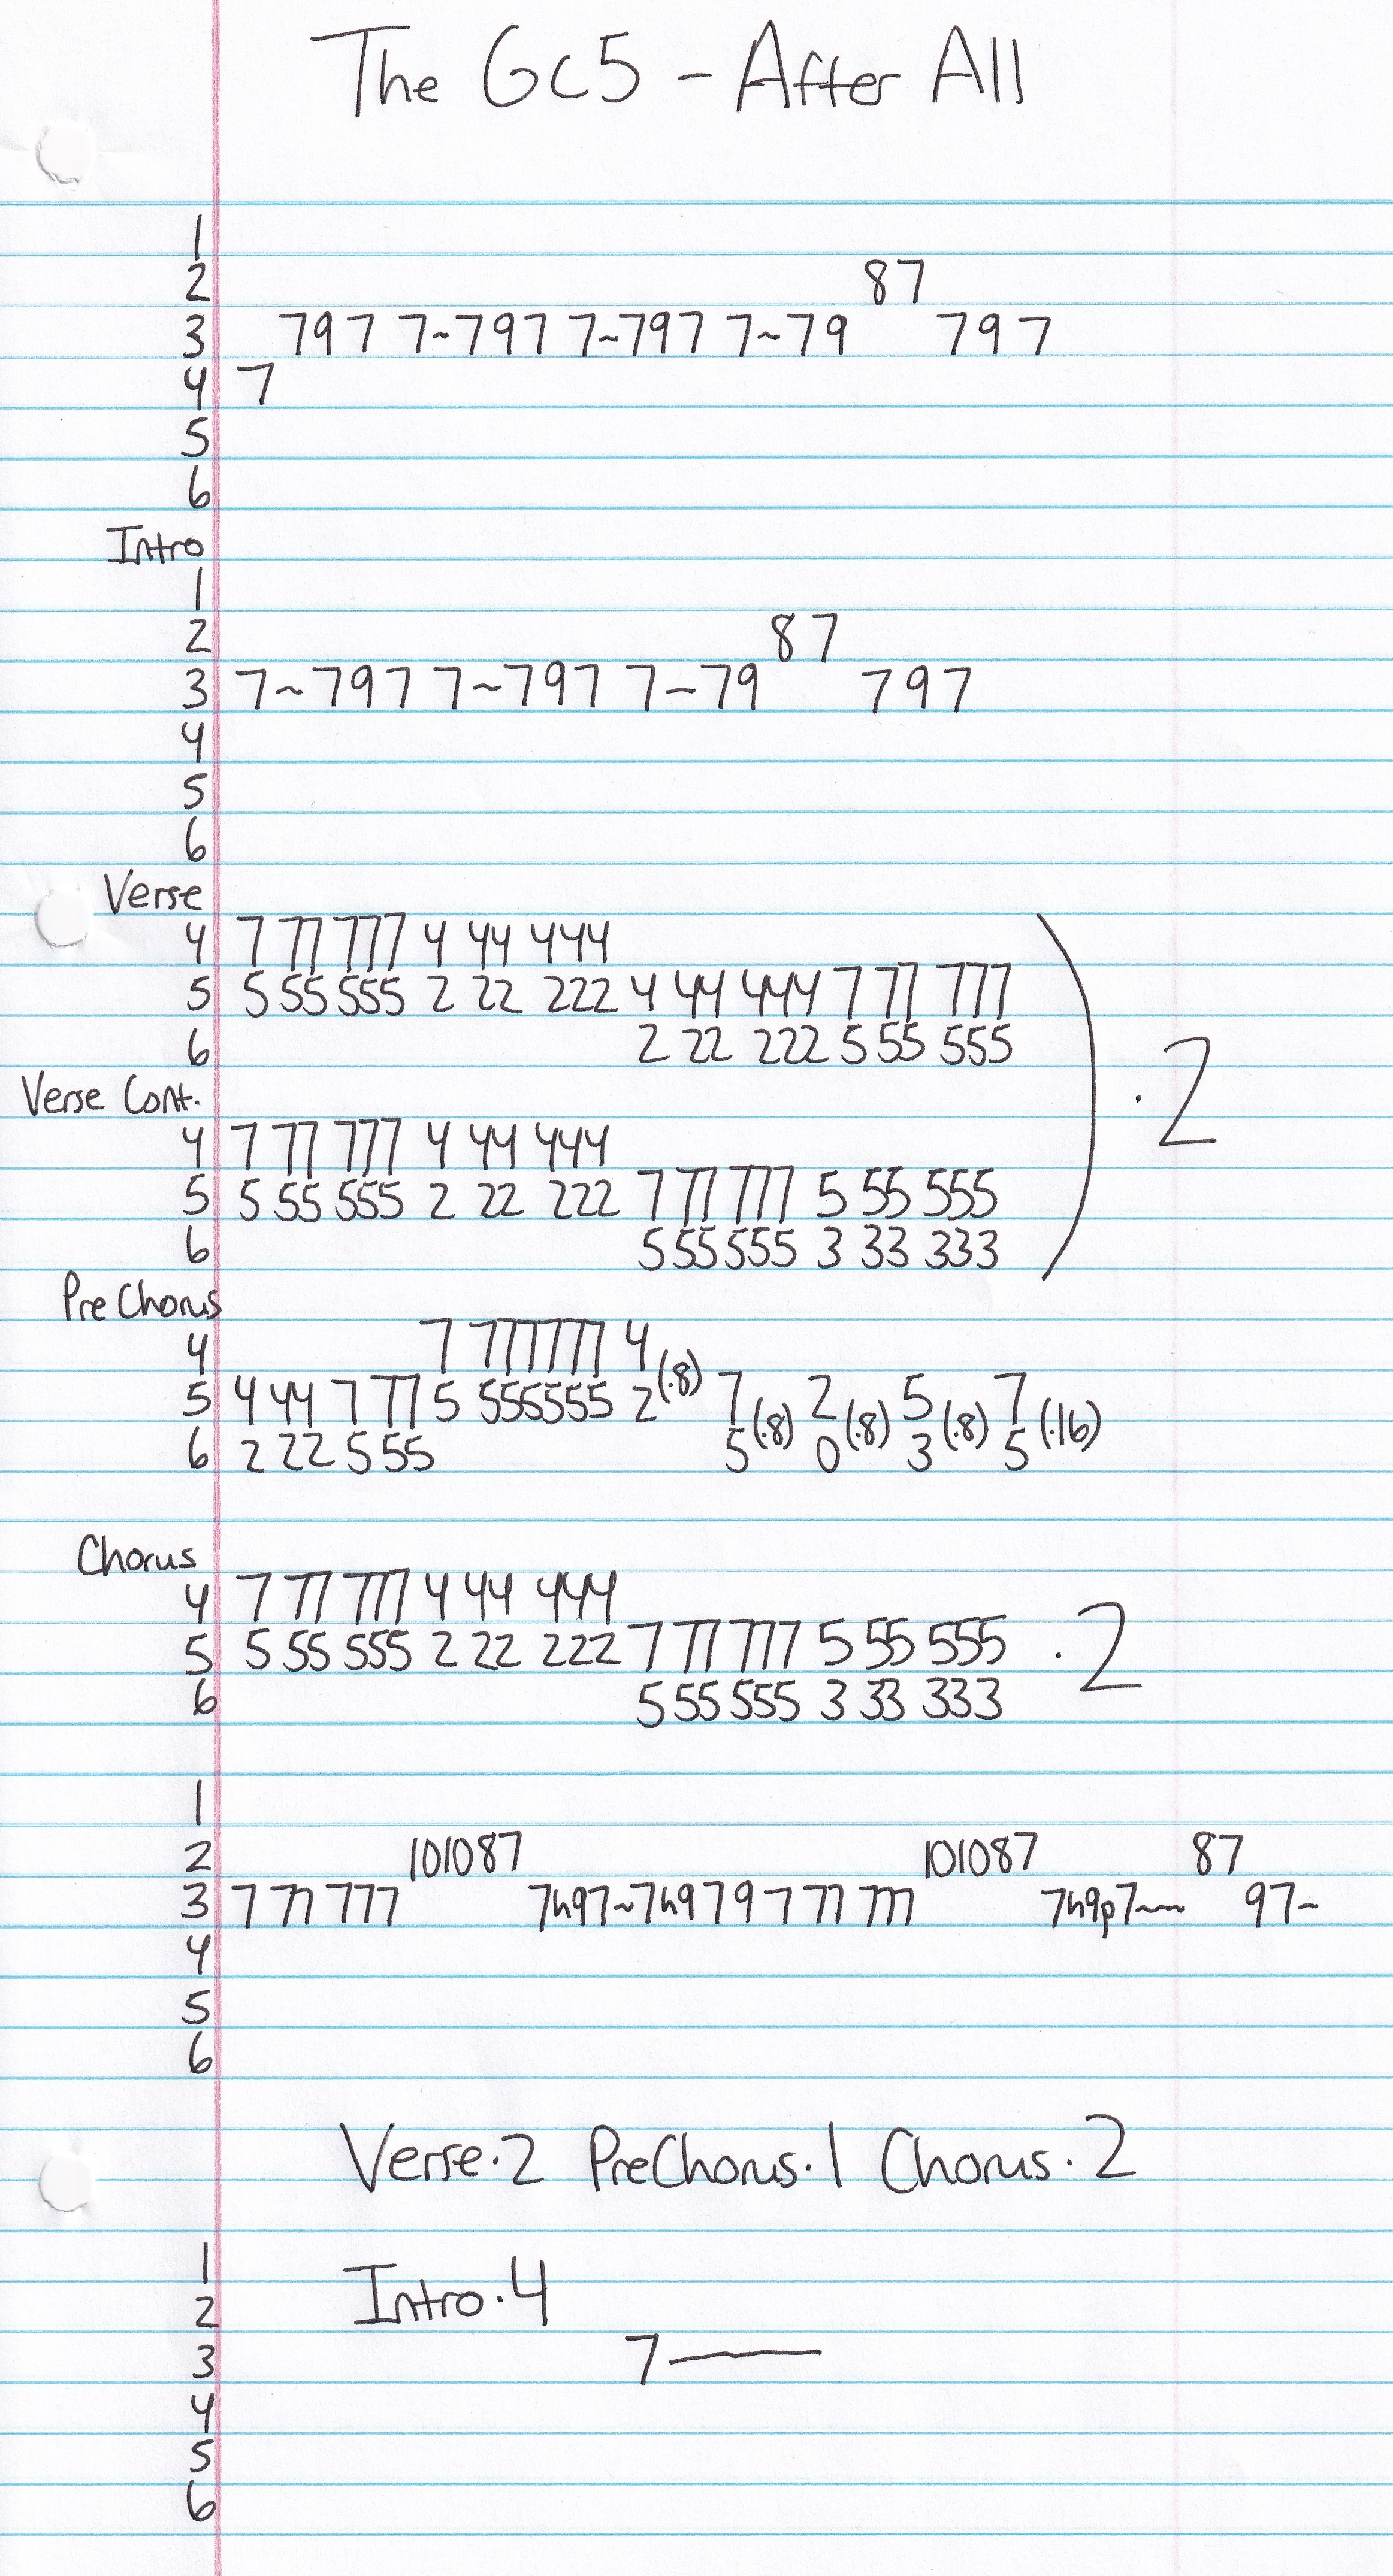 The GC5 - After All
1
2 87
3 797 7~797 7~797 7~79 797
4 7
5
6
Intro
1
2 87
3 7~797 7~797 7-79 797
4
5
6
Verse
4 7 77 777 4 44 444
5 5 55 555 2 22 222 4 44 444 7 77 777
6 2 22 222 5 55 555
·2
Verse Cont.
4 7 77 777 4 44 444
5 5 55 555 2 22 222 7 77 777 5 55 555
6 5 55 555 3 33 333
PreChorus
4 7 777777 4
5 4 44 7 77 5 555555 2 (·8) 7 2 5 7
6 2 22 5 55 5 (·8) 0 (·8) 3 (·8) 5 (·16)
Chorus
4 7 77 777 4 44 444
5 5 55 555 2 22 222 7 77 777 5 55 555 ·2
6 5 55 555 3 33 333
1
2 101087 101087 87
3 7 77 777 7h97~7h9 79 7 77 777 7h9p7~~ 97~
4
5
6
Verse·2 PreChorus·1 Chorus·2
1
2 Intro·4
3 7——
4
5
6